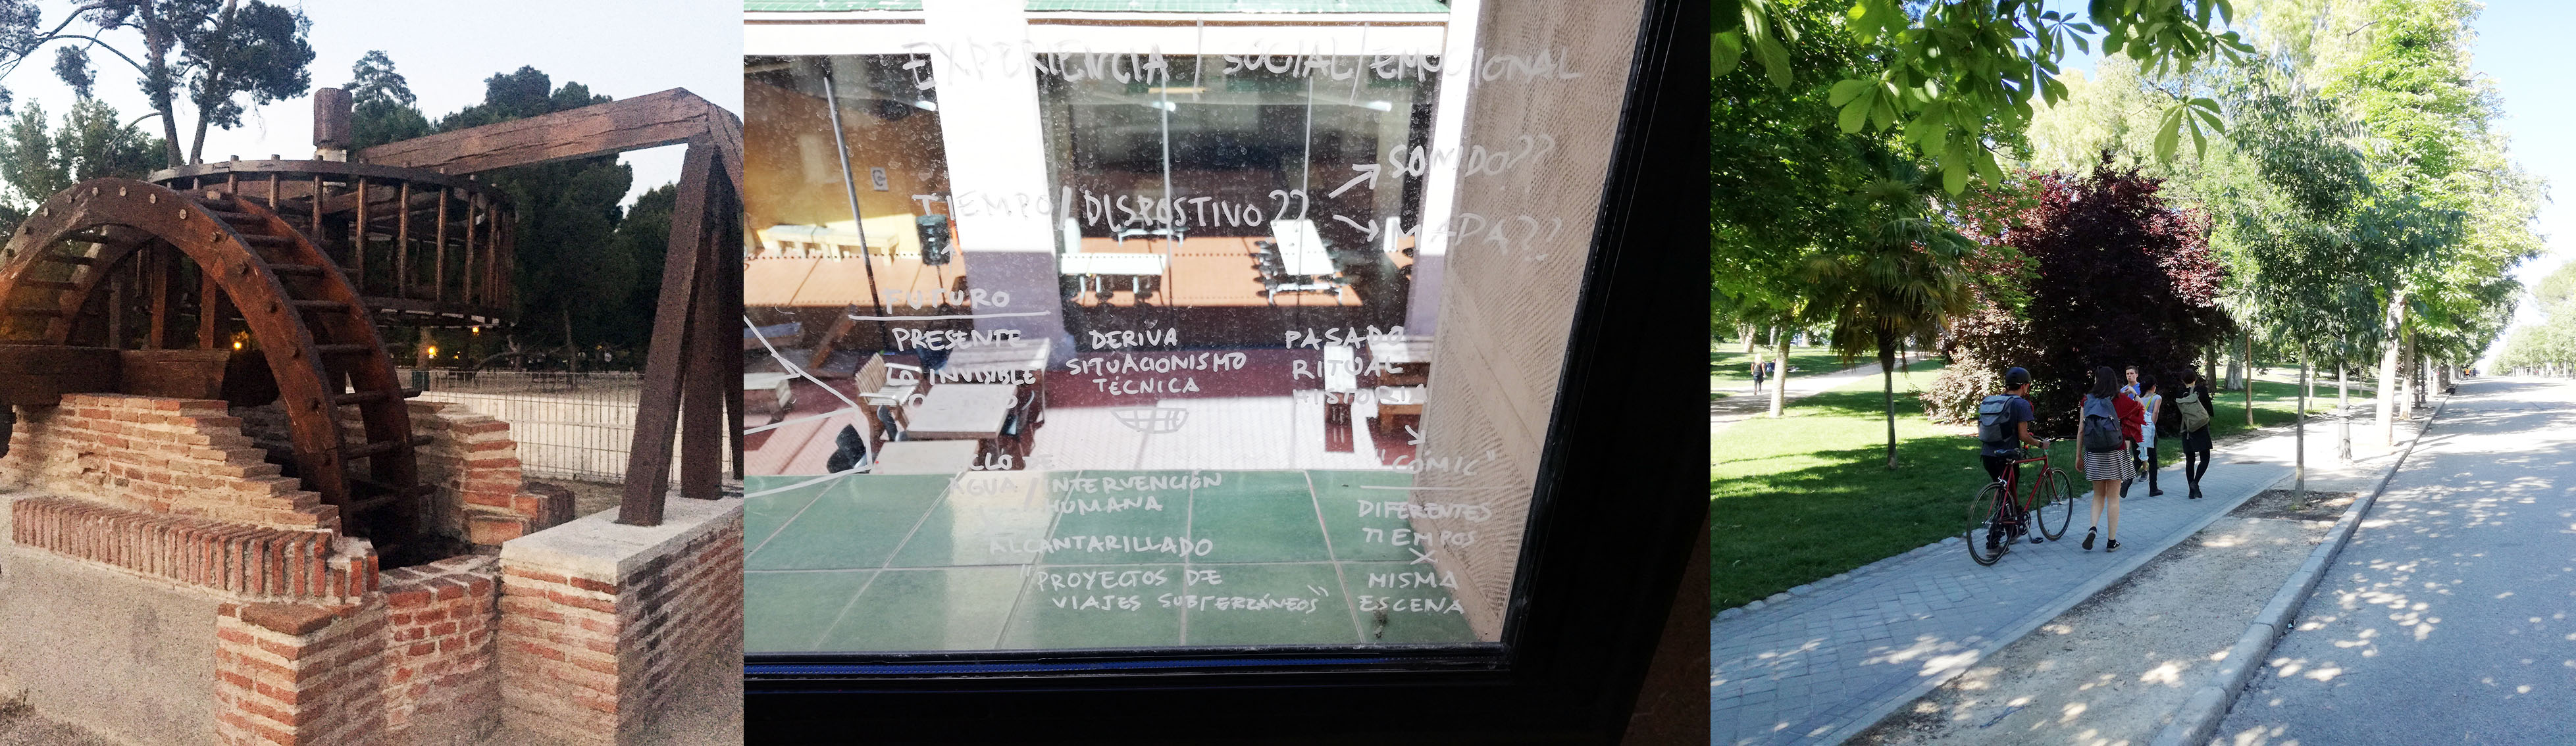 EXPERIENCIA / SOCIAL / EMOCIONAL
SONIDO??
TIEMPO / DISPOSTIVO??
MAPA??
FUTURO
PRESENTE
LO INVISIBLE
DERIVA
SITUACIONISMO
TÉCNICA
PASADO
RITUAL
HISTORIA
AGUA / INTERVENCIÓN
HUMANA
ALCANTARILLADO
"PROYECTOS DE
VIAJES SUBTERRÁNEOS"
"CÓMIC"
DIFERENTES
TIEMPOS
X
MISMA
ESCENA